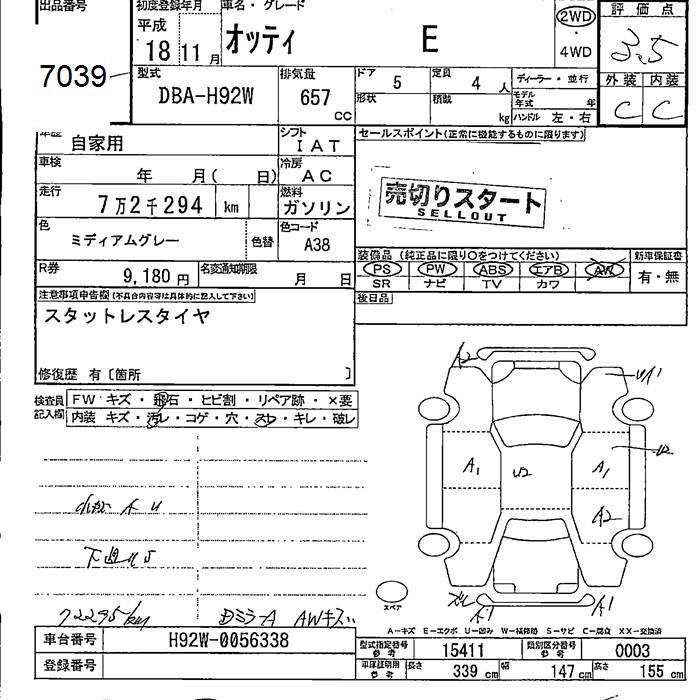 出品番号 初度登録年月 車名・グレード 評価点
平成 18 11 月 オッティ E 2WD ・ 4WD 3.5
7039 型式 DBA-H92W 排気量 657 cc ドア 5 定員 4 人 ディーラー・並行 外装 内装
形状 積載 kg モデル年式 年 ハンドル 左・右 C C
車歴 自家用 シフト IAT セールスポイント(正常に機能するものに限ります)
車検 年 月( 日) 冷房 AC
売切りスタート
SELLOUT
走行 7万2千294 km 燃料 ガソリン
色 ミディアムグレー 色替 色コード A38
装備品 (純正品に限り○をつけてください) 新車保証書
PS PW ABS エアB AW 有・無
SR ナビ TV カワ
R券 9,180 円 名変通知期限 月 日
後日品
注意事項申告欄(不具合内容等は具体的に記入して下さい)
スタットレスタイヤ
修復歴 有〔箇所 〕
検査員記入欄 FW キズ・飛石・ヒビ割・リペア跡・×要
内装 キズ・汚レ・コゲ・穴・スレ・キレ・破レ
A2 U1
A1 U2 A1 U2
A2
スペア A1 A1
下廻りS
72295km Dミラ-A AWキズ
A-キズ E-エクボ U-凹み W-補修跡 S-サビ C-腐食 XX-交換済
車台番号 H92W-0056338 型式指定番号 参考 15411 類別区分番号 参考 0003
登録番号 車庫証明用 参考 長さ 339 cm 幅 147 cm 高さ 155 cm